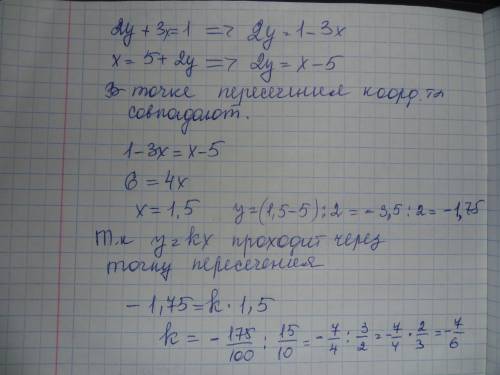 2y + 3x = 1 => 2y = 1 - 3x
x = 5 + 2y => 2y = x - 5
В точке пересечения коорд. та
совпадают.
1 - 3x = x - 5
6 = 4x
x = 1,5 y = (1,5 - 5) : 2 = - 3,5 : 2 = - 1,75
Т.к y = kx проходит через
точку пересечения
- 1,75 = k · 1,5
k = - 175/100 : 15/10 = - 7/4 : 3/2 = - 7/4 · 2/3 = - 7/6